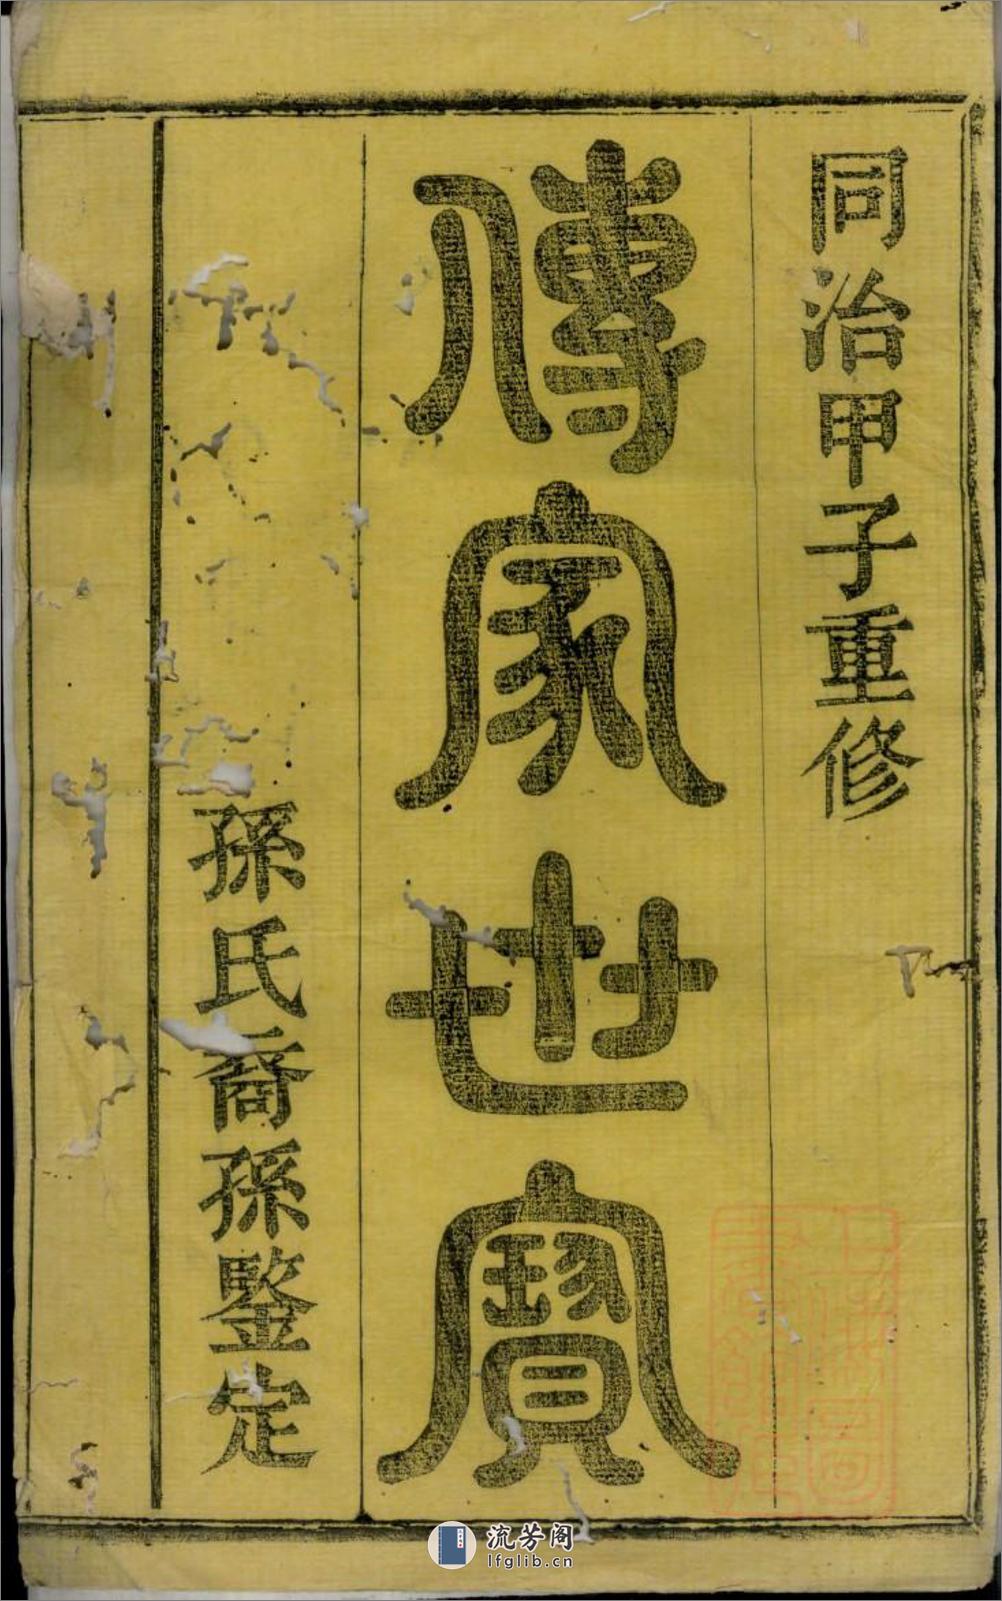 同治甲子重修
傳家世寶
孫氏裔孫鋻定
流芳阁
lfglib.cn